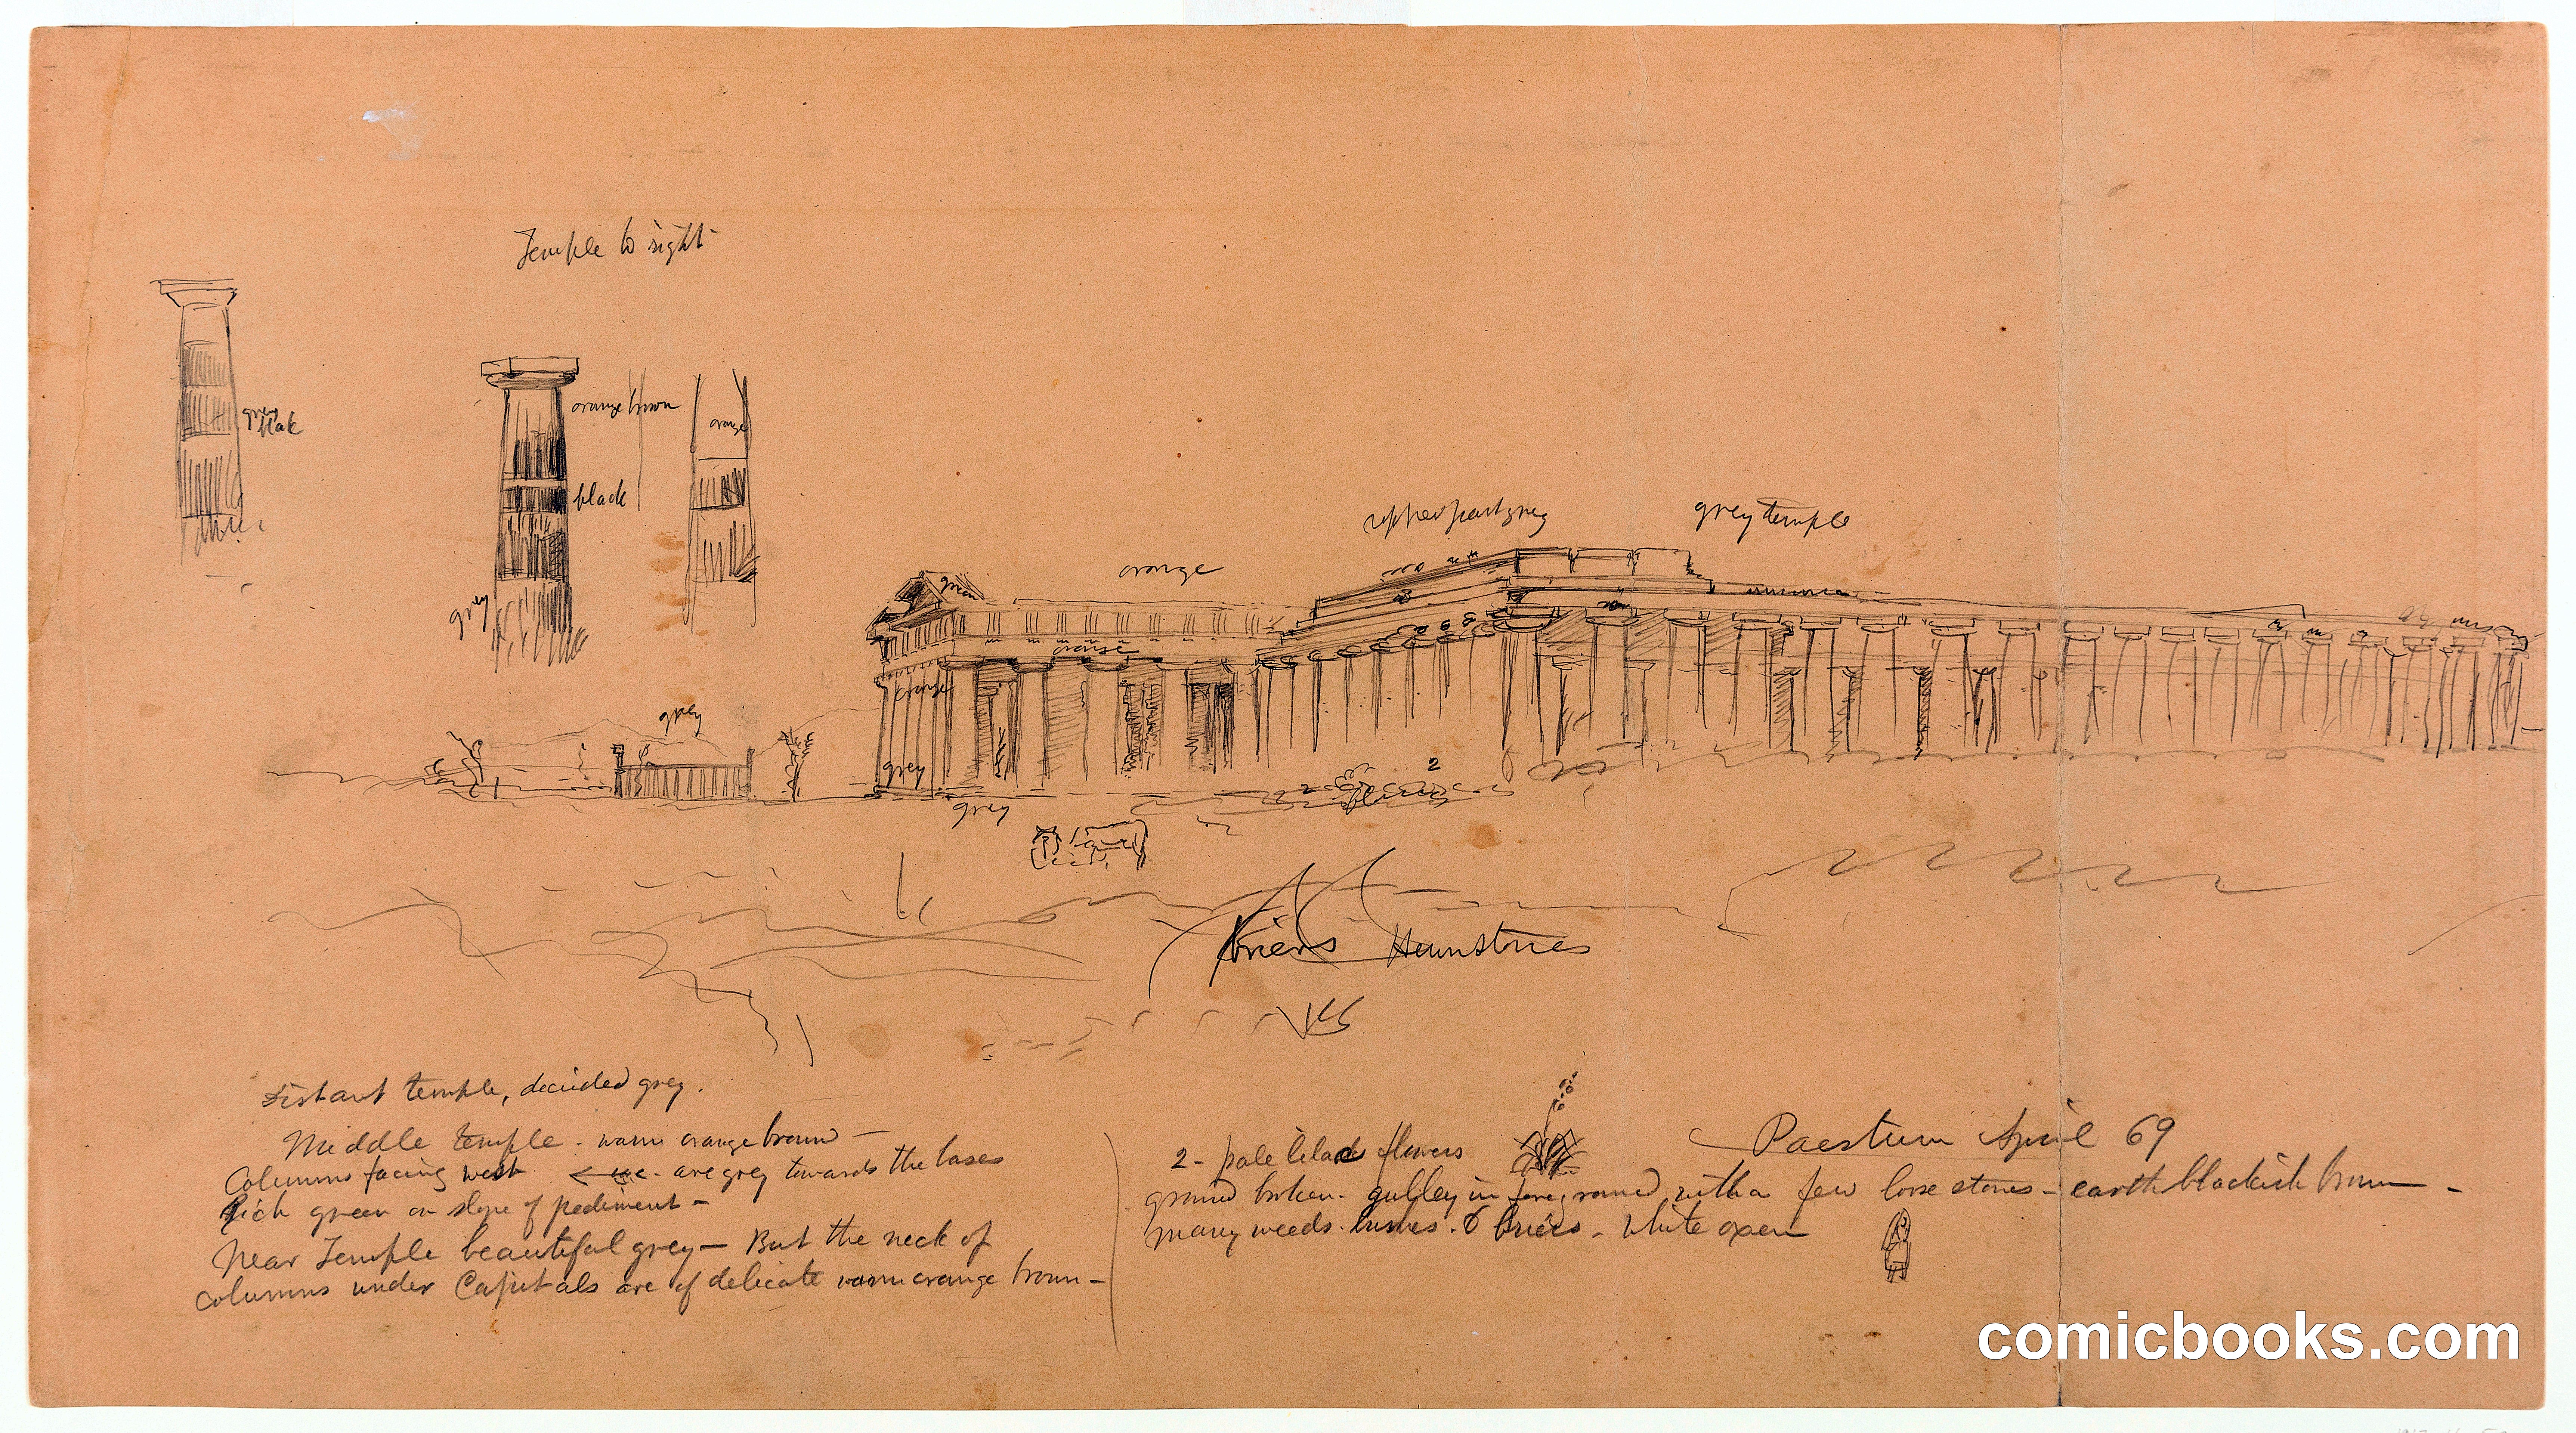 Temple to right
grey
black
orange brown
orange
black
grey
upper part grey
grey temple
orange
green
orange
orange
grey
grey
2
grey
2
briers
Distant temple, decided grey.
Middle temple - warm orange brown -
Columns facing west are grey towards the bases
Rich green on slope of pediment -
Near Temple beautiful grey - But the neck of
columns under Capitals are of delicate warm orange brown -
2 - pale lilac flowers
ground broken - gulley in foreground with a few loose stones - earth blackish brown -
many weeds. bushes. & briers - White oxen
Paestum April 69
comicbooks.com